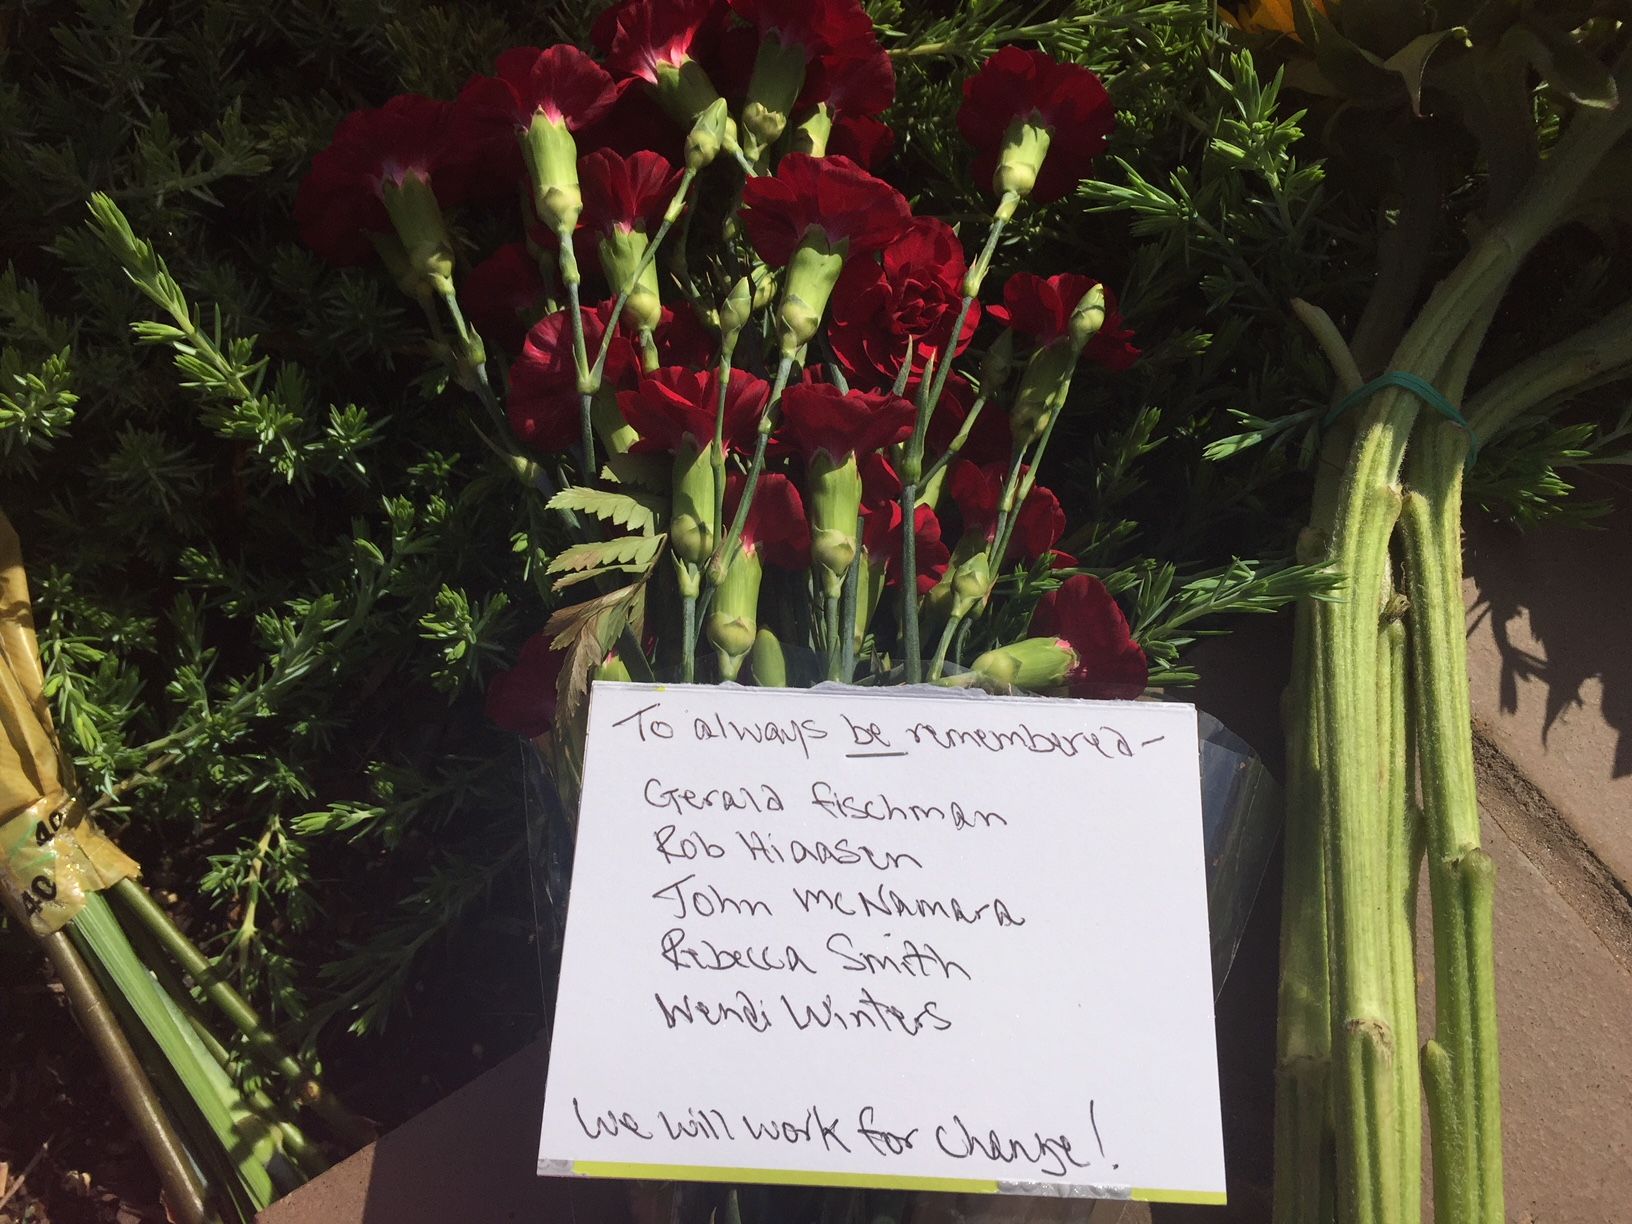 To always be remembered-
Gerald Fischman
Rob Hiaasen
John McNamara
Rebecca Smith
Wendi Winters
We will work for change!
40
40